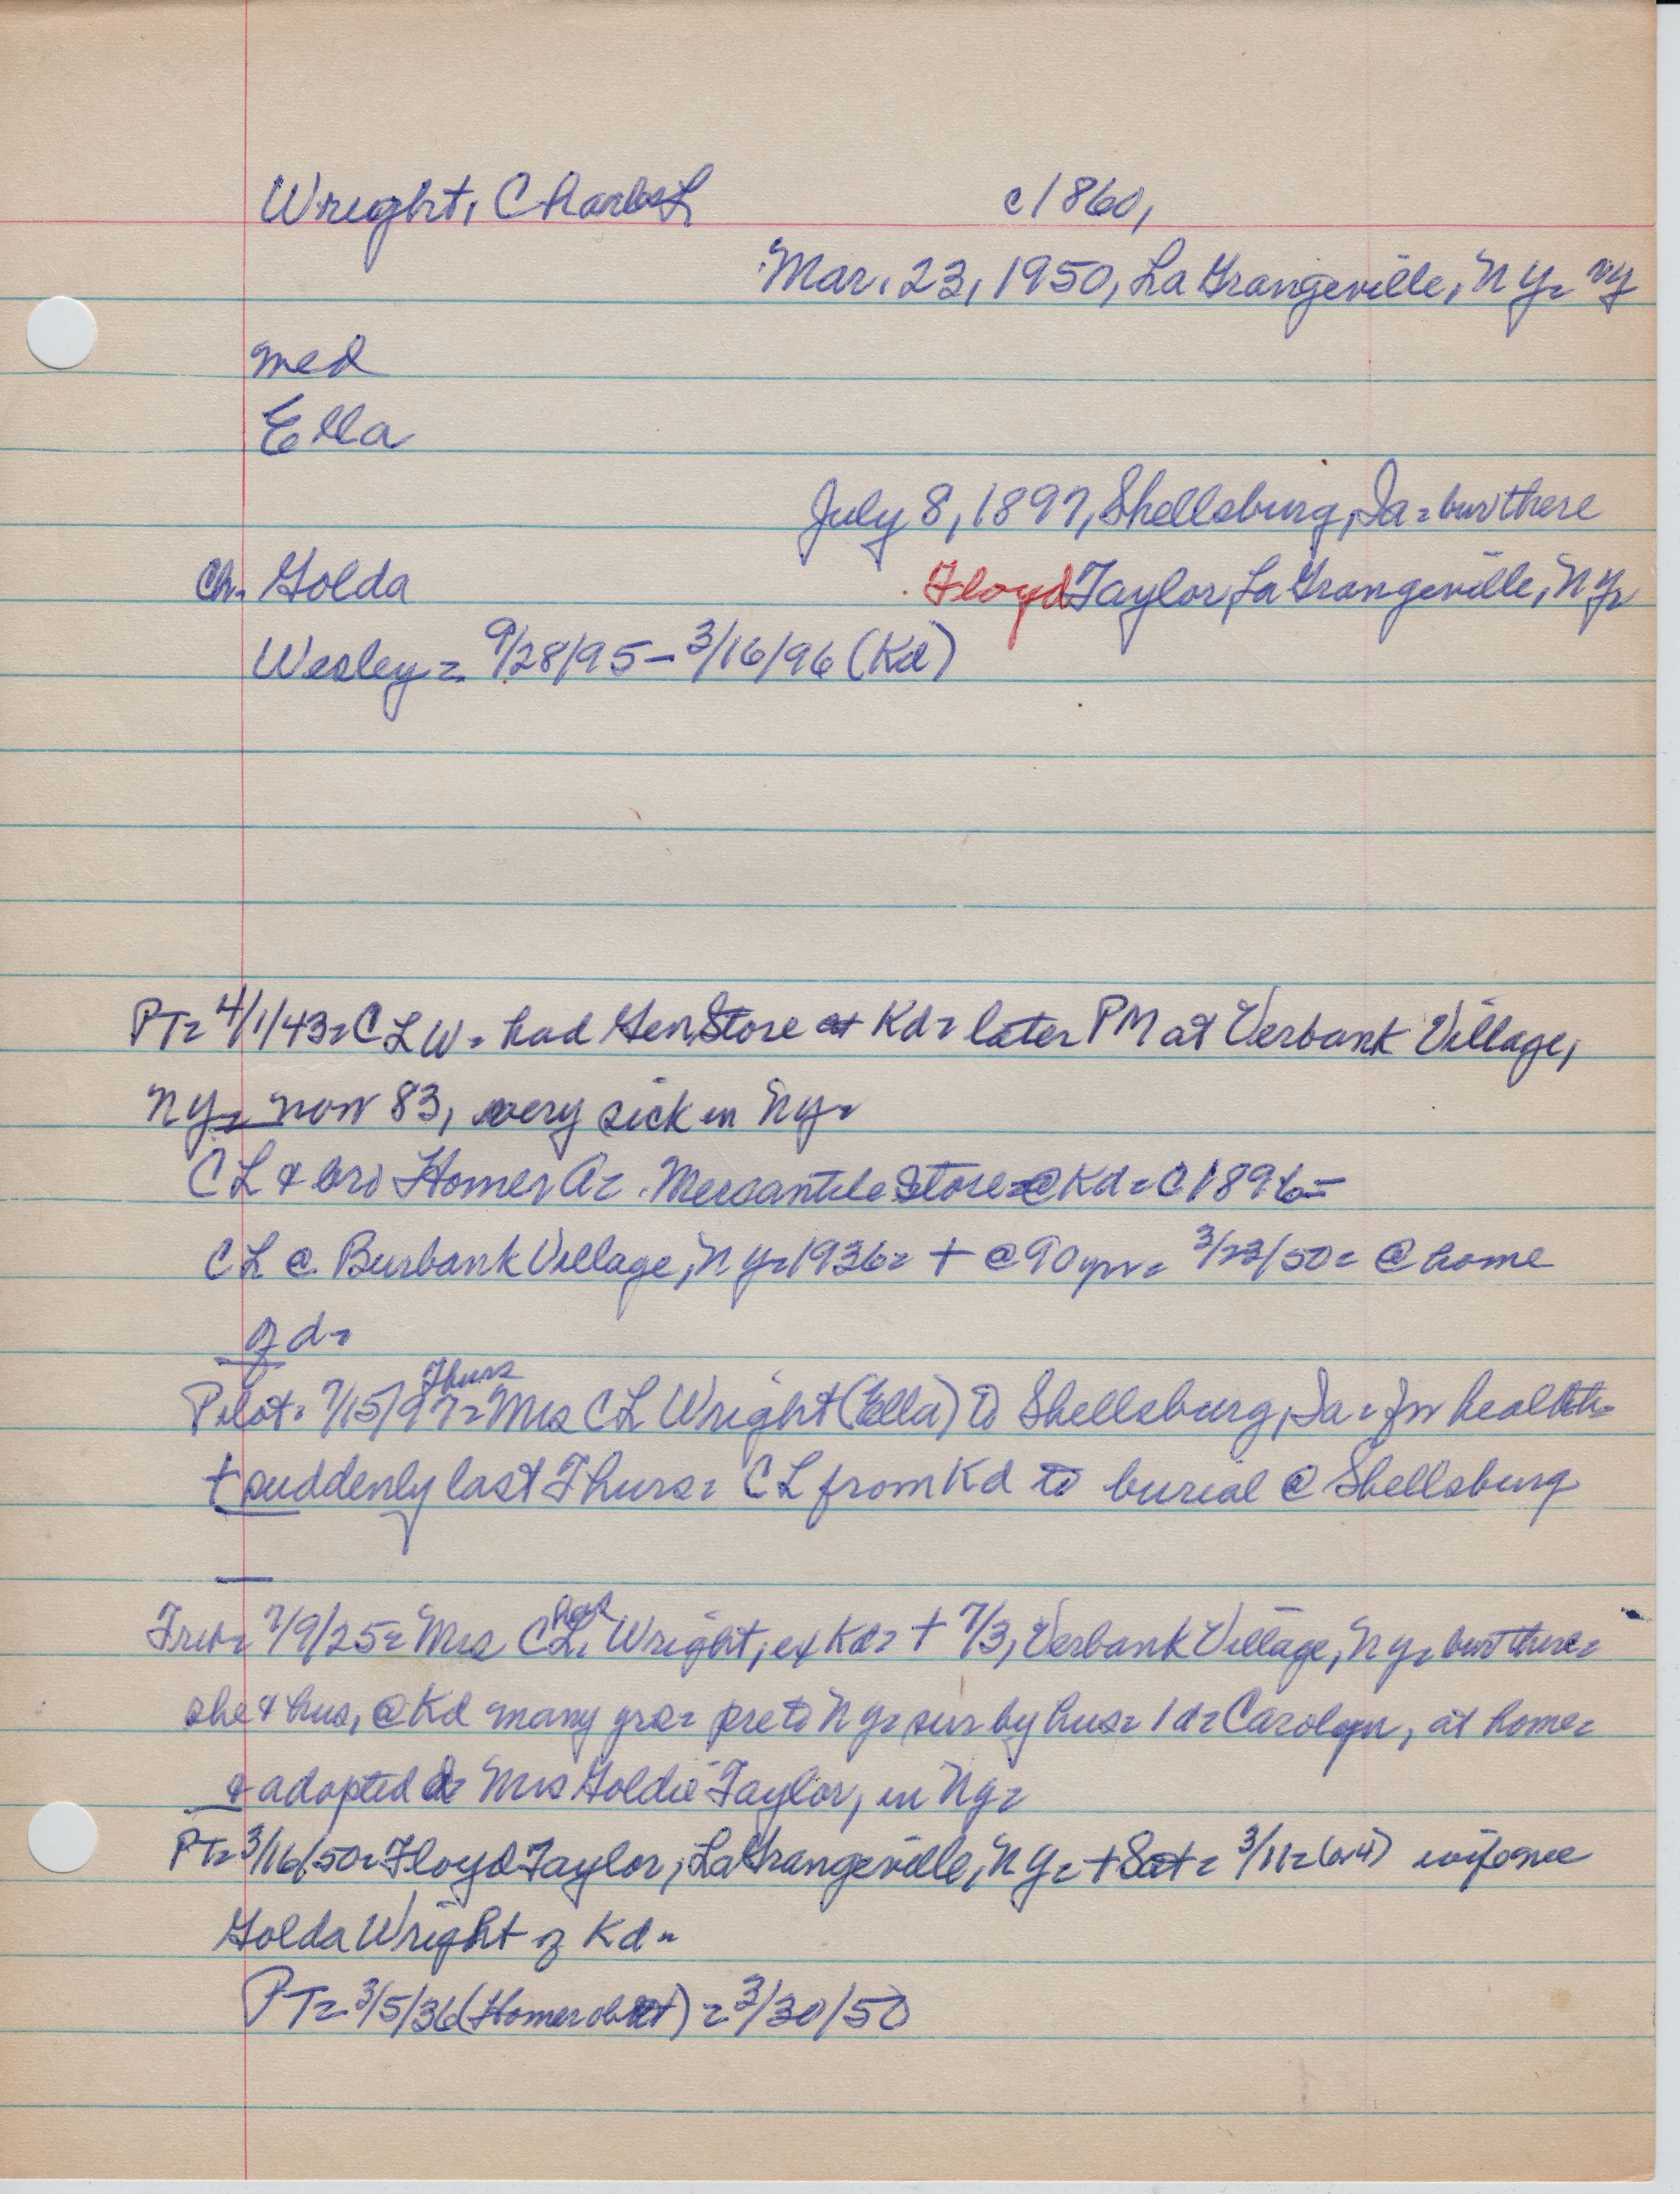 Wright, Charles L c1860,
Mar. 23, 1950, LaGrangeville, NY= NY
med
Ella
July 8, 1897, Shellsburg, Ia= bur there
Ch. Golda Floyd Taylor, LaGrangeville, NY=
Wesley= 9/28/95-3/16/96 (Kd)
PT= 4/1/43= CLW= had Gen Store at Kd= later PM at Verbank Village,
NY= now 83, very sick in NY=
CL & bro Homer A= Mercantile Store= @ Kd= c1896=
CL @ Burbank Village, NY= 1936= + @ 90 yrs= 3/23/50= @ home
of d=
Pilot= 7/15/97= Thurs Mrs CL Wright (Ella) to Shellsburg, Ia= for health=
+ suddenly last Thurs= CL from Kd to burial @ Shellsburg
Trib= 7/9/25= Mrs Chas L. Wright, ex Kd= + 7/3, Verbank Village, NY= bur there=
she & hus, @ Kd many yrs= pre to NY= sur by hus= 1 d= Carolyn, at home=
& adopted d= Mrs Goldie Taylor, in NY=
PT= 3/16/50= Floyd Taylor, LaGrangeville, NY= + Sat= 3/11= wife nee
Golda Wright of Kd=
PT= 3/5/36 (Homer obit) = 3/30/50